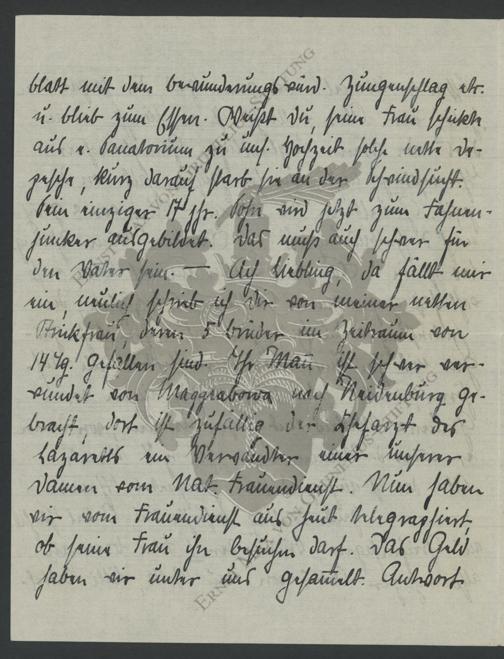 blatt mit dem bewunderungswürd. Zungenschlag etc.
u. blieb zum Essen. Weißt Du, seine Frau schickte
aus e. Sanatorium zu uns. Hochzeit solche nette De-
pesche, kurz darauf starb sie an der Schwindsucht.
Sein einziger 17 jhr. Sohn wird jetzt zum Fahnen-
junker ausgebildet. Das muß auch schwer für
den Vater sein. — Ach Liebling, da fällt mir
ein, neulich schrieb ich Dir von meiner netten
Strickfrau, deren 5 Brüder im Zeitraum von
14 Tg. gefallen sind. Ihr Mann ist schwer ver-
wundet von Marggrabowa nach Neidenburg ge-
bracht, dort ist zufällig der Chefarzt des
Lazaretts ein Verwandter einer unserer
Damen vom Nat. Frauendienst. Nun haben
wir vom Frauendienst aus heut telegraphiert,
ob seine Frau ihn besuchen darf. Das Geld
haben wir unter uns gesammelt. Antwort